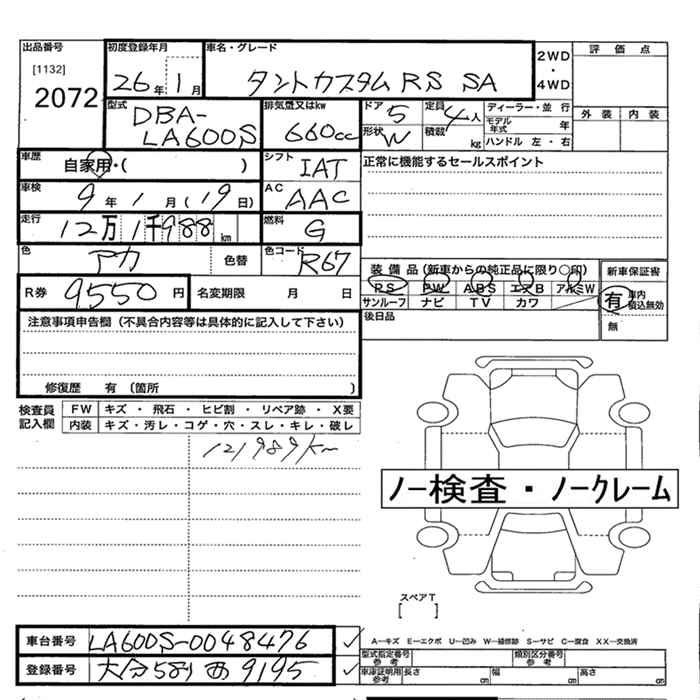 出品番号
[1132]
2072
初度登録年月
26年1月
車名・グレード
タントカスタム RS SA
2WD
・
4WD
評価点
外装 内装
型式
DBA-
LA600S
排気量又はkw
660cc
ドア 5
形状 W
定員 4人
積載 kg
ディーラー・並行
モデル年式 年
ハンドル 左・右
車歴
自家用・( )
シフト IAT
正常に機能するセールスポイント
車検
9年1月(19日)
AC AAC
走行
12万1千988km
燃料 G
色 アカ 色替
色コード R67
装備品(新車からの純正品に限り〇印)
RS PW ABS エアB アルミW
サンルーフ ナビ TV カワ
新車保証書
有 車内積込無効
無
R券 9550円
名変期限 月 日
後日品
注意事項申告欄(不具合内容等は具体的に記入して下さい)
修復歴 有(箇所 )
検査員記入欄
FW キズ・飛石・ヒビ割・リペア跡・X要
内装 キズ・汚レ・コゲ・穴・スレ・キレ・破レ
121989km
ノー検査・ノークレーム
スペアT
[ ]
車台番号 LA600S-0048476
登録番号 大分581 西 9195
A―キズ E―エクボ U―凹み W―補修跡 S―サビ C―腐食 XX―交換済
型式指定番号 参考
類別区分番号 参考
車庫証明用 参考 長さ cm 幅 cm 高さ cm